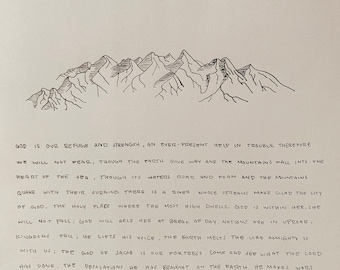 GOD IS OUR REFUGE AND STRENGTH, AN EVER-PRESENT HELP IN TROUBLE THEREFORE
WE WILL NOT FEAR, THOUGH THE EARTH GIVE WAY AND THE MOUNTAINS FALL INTO THE
HEART OF THE SEA, THOUGH ITS WATERS ROAR AND FOAM AND THE MOUNTAINS
QUAKE WITH THEIR SURGING THERE IS A RIVER WHOSE STREAMS MAKE GLAD THE CITY
OF GOD, THE HOLY PLACE WHERE THE MOST HIGH DWELLS. GOD IS WITHIN HER, SHE
WILL NOT FALL; GOD WILL HELP HER AT BREAK OF DAY. NATIONS ARE IN UPROAR,
KINGDOMS FALL; HE LIFTS HIS VOICE, THE EARTH MELTS. THE LORD ALMIGHTY IS
WITH US; THE GOD OF JACOB IS OUR FORTRESS. COME AND SEE WHAT THE LORD
HAS DONE, THE DESOLATIONS HE HAS BROUGHT ON THE EARTH. HE MAKES WARS